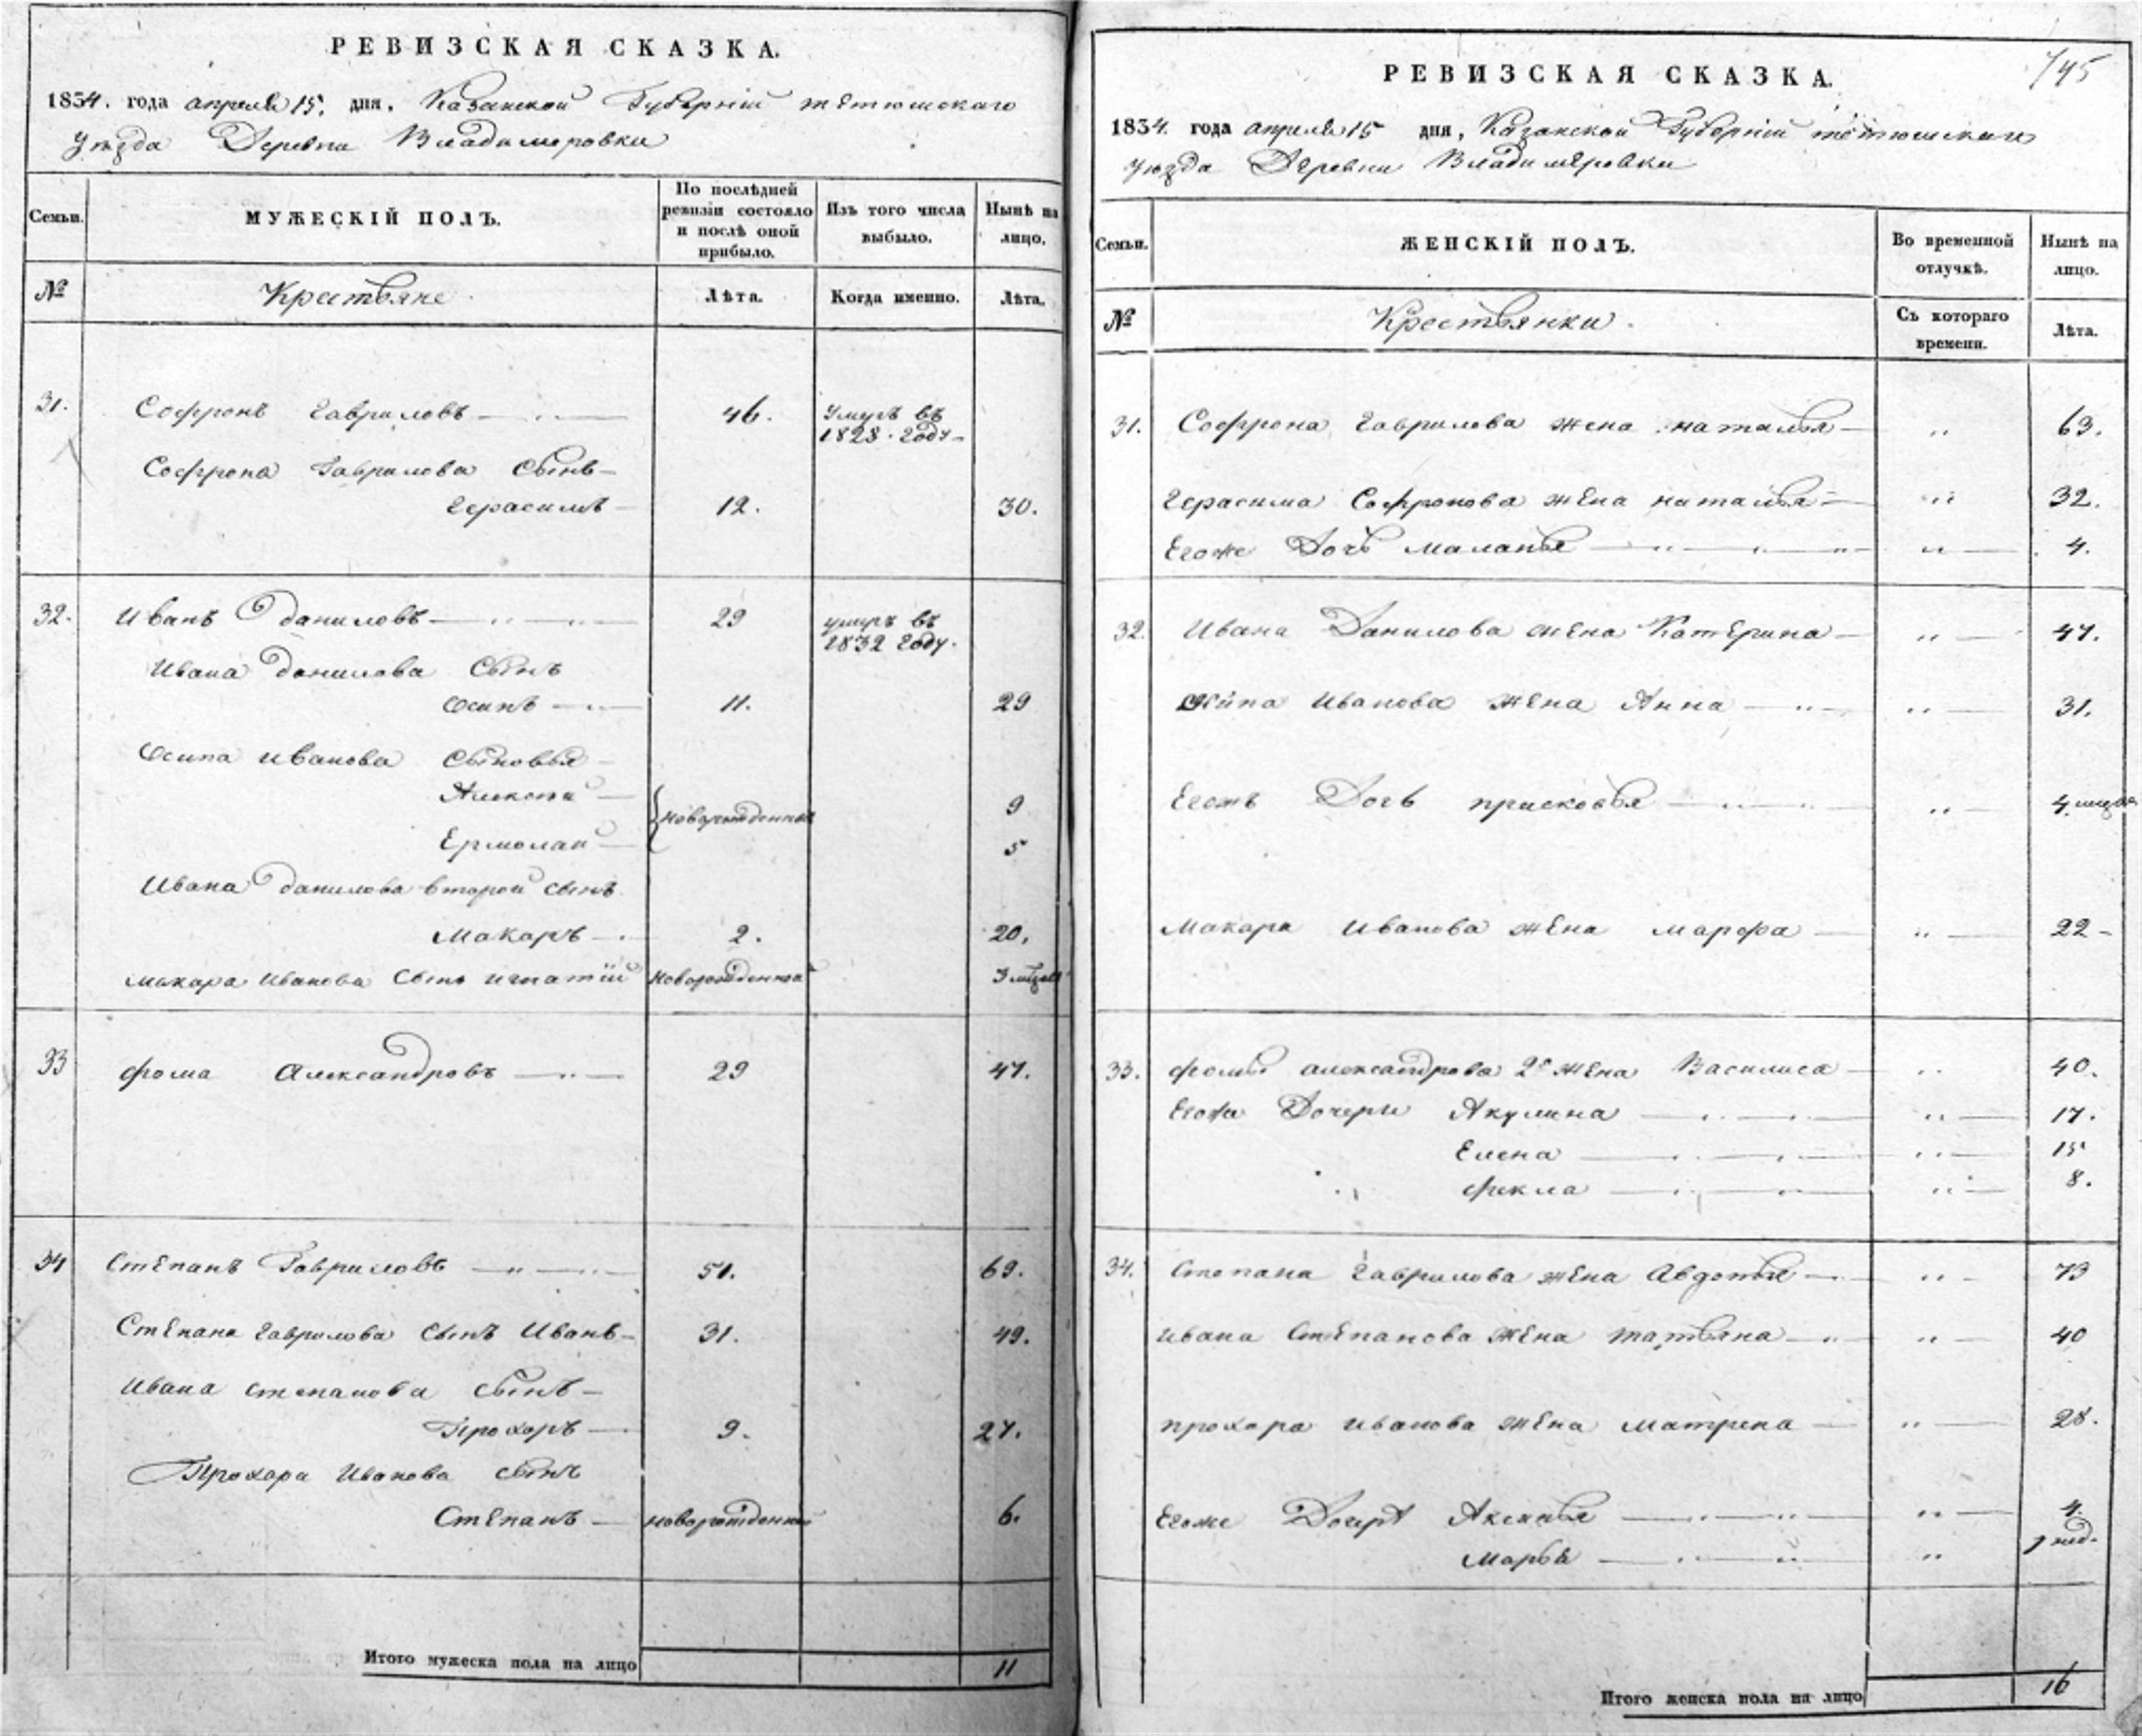 РЕВИЗСКАЯ СКАЗКА.
1834. года апреля 15. дня, Казанской Губернiи тетюшскаго
Уезда Деревни Владимеровки
Семьи. МУЖЕСКІЙ ПОЛЪ. По послѣдней ревизіи состояло и послѣ оной прибыло. Изъ того числа выбыло. Нынѣ на лицо.
№ Крестьяне Лѣта. Когда именно. Лѣта.
31. Софронъ Гавриловъ 46. Умеръ въ 1828. Году
Софрона Гаврилова Сынъ
Герасимъ 12. 30.
32. Иванъ Даниловъ 29 умеръ въ 1832 Году.
Ивана Данилова Сынъ
Осипъ 11. 29
Осипа Иванова Сыновья
Алексей 9
новорожденные
Ермолай 5
Ивана Данилова второй сынъ
Макаръ 2. 20.
Макара Иванова Сынъ Игнатiй новорожденной 3 месяца
33 фома Александровъ 29 47.
34 Степанъ Гавриловъ 51. 69.
Степана Гаврилова Сынъ Иванъ 31. 49.
Ивана Степанова Сынъ
Прохоръ 9. 27.
Прохора Иванова Сынъ
Степанъ новорожденной 6.
Итого мужеска пола на лицо 11
745
РЕВИЗСКАЯ СКАЗКА.
1834. года апреля 15 дня, Казанской Губернiи тетюшскаго
Уезда Деревни Владимеровки
Семьи. ЖЕНСКІЙ ПОЛЪ. Во временной отлучкѣ. Нынѣ на лицо.
№ Крестьянки. Съ котораго времени. Лѣта.
31. Софрона Гаврилова жена наталья 63.
Герасима Софронова жена наталья 32.
Егоже Дочь Маланья 4.
32. Ивана Данилова жена Катерина 47.
Осипа Иванова жена Анна 31.
Егожъ Дочь прасковья 4 месяца
Макара Иванова жена марфа 22
33. фомы александрова 2я жена Василиса 40.
Егоже Дочери Акулина 17.
Елена 15
Фекла 8.
34. Степана Гаврилова жена Авдотья 73
Ивана Степанова жена татьяна 40
прохора Иванова жена матрена 28.
Егоже Дочери Аксинья 4.
Марья нед.
Итого женска пола на лицо 16